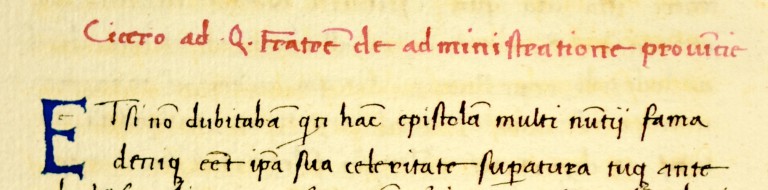 Cicero ad .Q. Fratrē de administratione prouīcie
ETsi nō dubitabā qn hāc epistolā multi nūtij fama
deniq eēt ipā sua celeritate supatura tuq ante